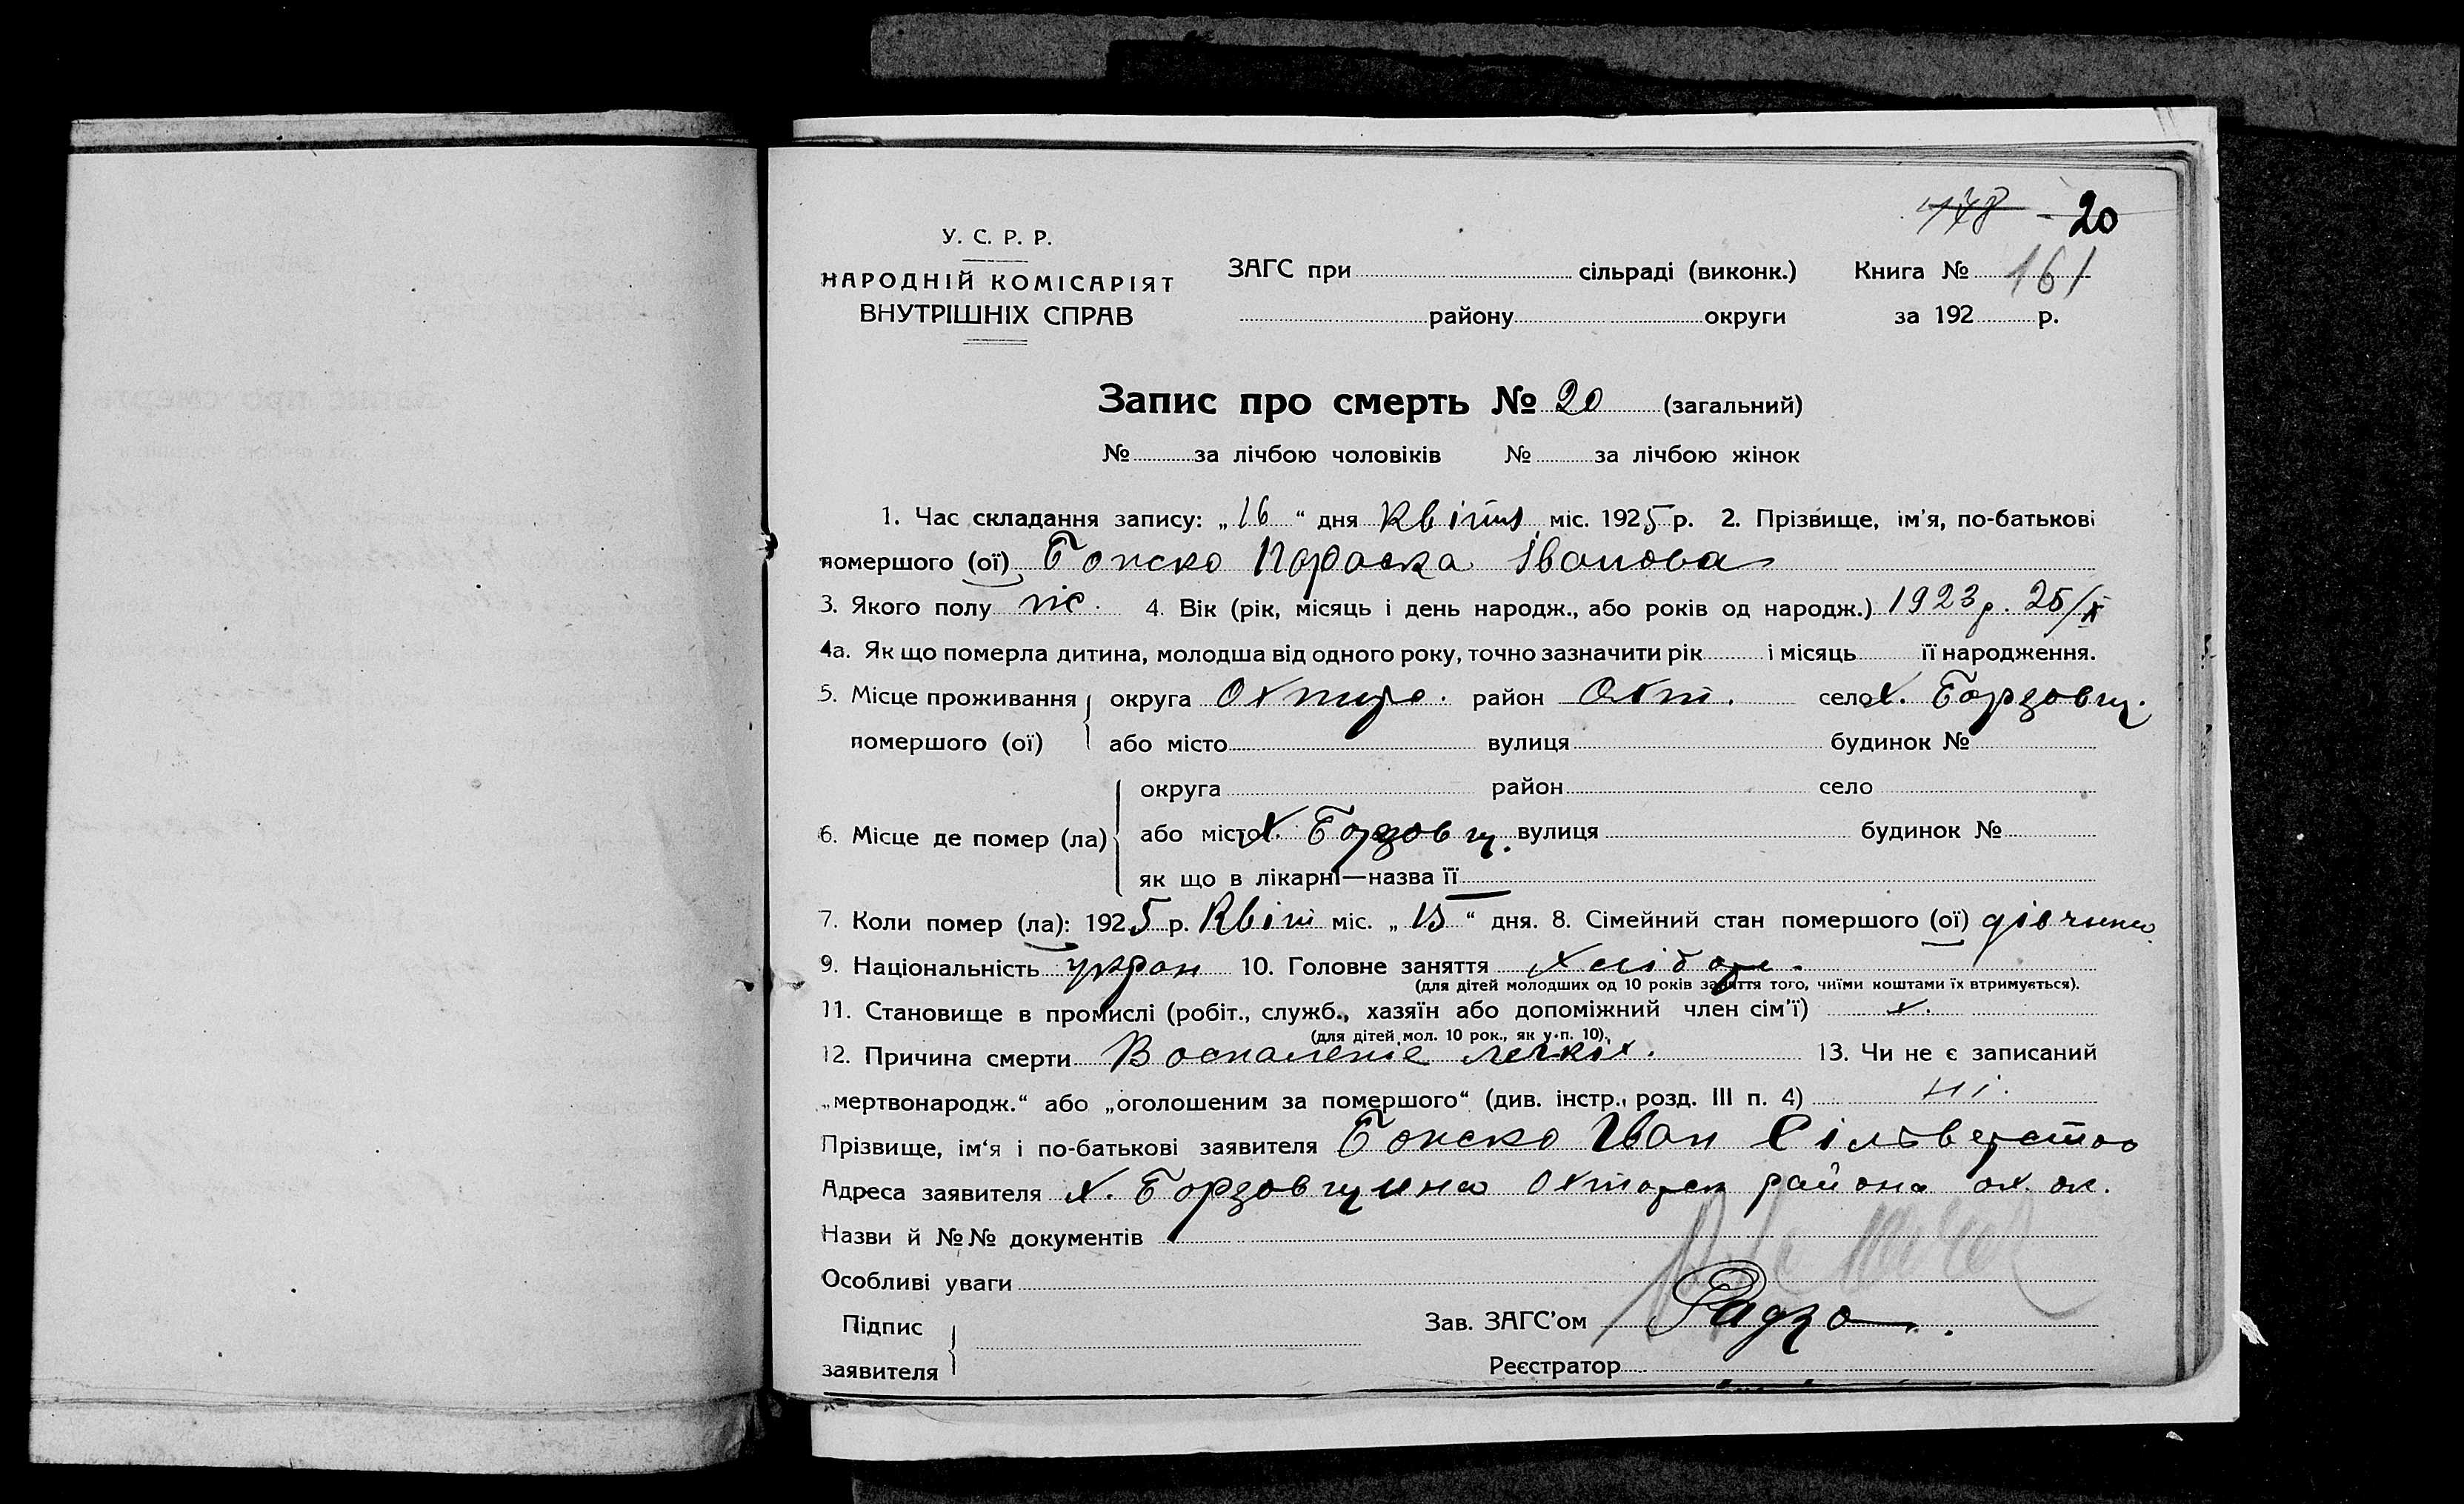 178 - 20
У. С. Р. Р.
НАРОДНІЙ КОМІСАРІЯТ
ВНУТРІШНІХ СПРАВ
ЗАГС при сільраді (виконк.) Книга № 161
району округи за 192 р.
Запис про смерть № 20 (загальний)
№ за лічбою чоловіків № за лічбою жінок
1. Час складання запису: „16“ дня Квітня міс. 1925 р. 2. Прізвище, ім'я, по-батькові
помершого (ої) Параска Іванова
3. Якого полу ж. 4. Вік (рік, місяць і день народж., або років од народж.) 1923 р. 25/X
4а. Як що померла дитина, молодша від одного року, точно зазначити рік і місяць її народження.
5. Місце проживання округа Охтир. район Охт. село х. Борзовщ.
помершого (ої) або місто вулиця будинок №
округа район село
6. Місце де помер (ла) або місто х. Борзовщ. вулиця будинок №
як що в лікарні—назва її
7. Коли помер (ла): 1925 р. Квіт міс. „15“ дня. 8. Сімейний стан помершого (ої) дівчина
9. Національність укран 10. Головне заняття Хлібор.
(для дітей молодших од 10 років заняття того, чиїми коштами їх втримується).
11. Становище в промислі (робіт., служб., хазяїн або допоміжний член сім'ї) х.
(для дітей мол. 10 рок., як у п. 10).
12. Причина смерти Воспаленіе легких. 13. Чи не є записаний
„мертвонародж.“ або „оголошеним за помершого“ (див. інстр., розд. III п. 4) ні.
Прізвище, ім'я і по-батькові заявителя Іван
Адреса заявителя х. Борзовщина района ох. ок.
Назви й №№ документів
Особливі уваги
Підпис
заявителя
Зав. ЗАГС'ом
Реєстратор